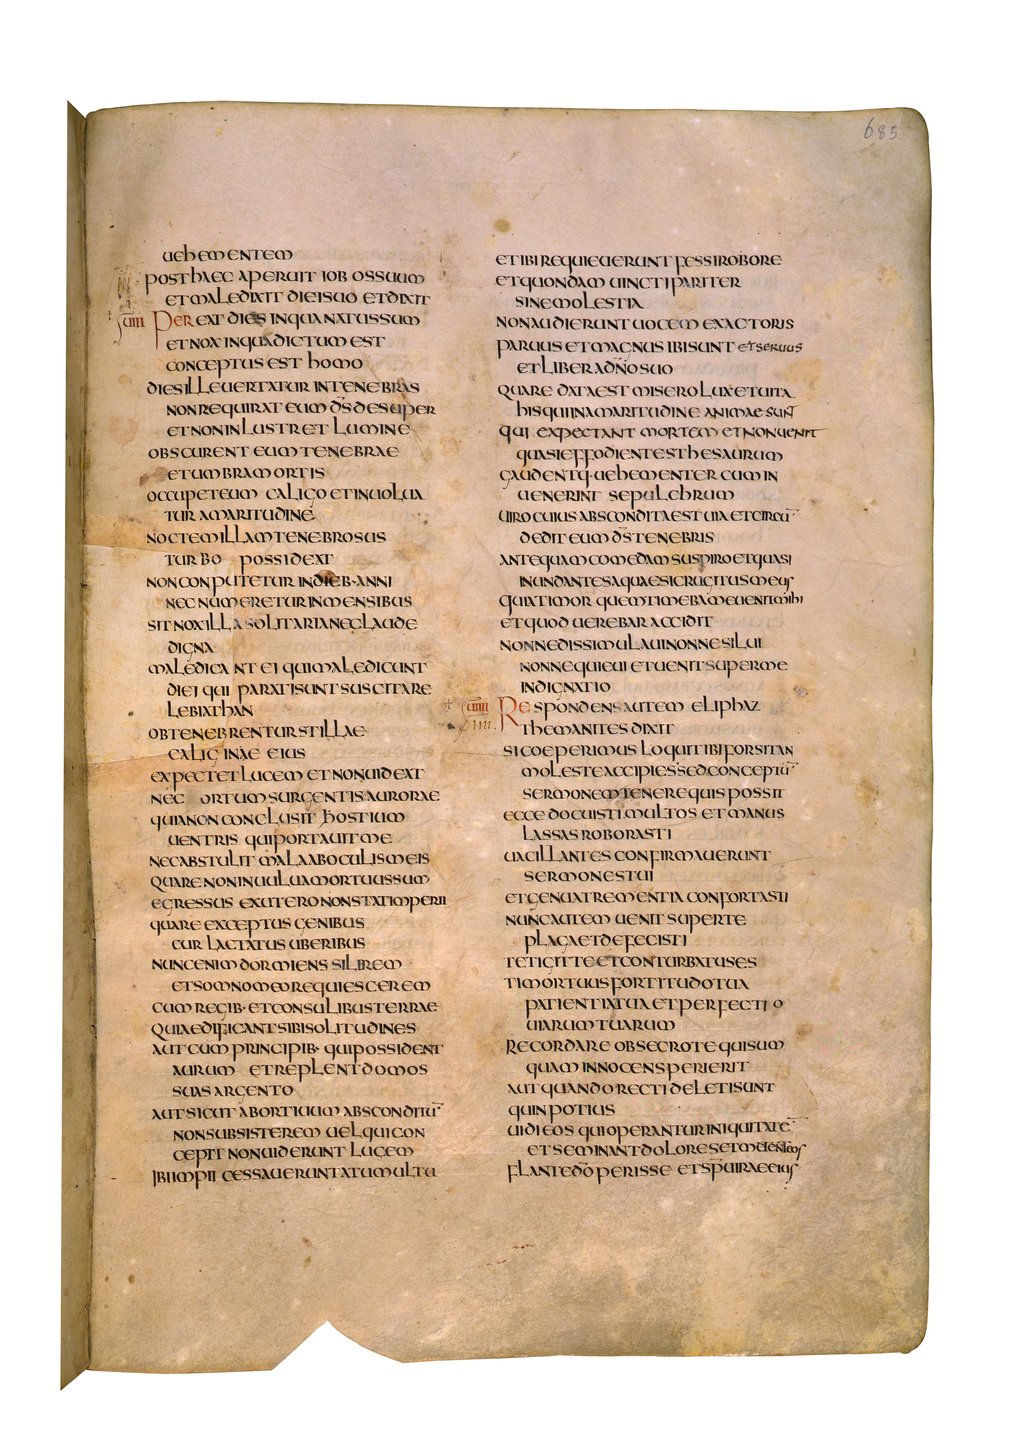 685
uehementem
post haec aperuit iob os suum
et maledixit diei suo et dixit
iii
Pereat dies in qua natus sum
et nox in qua dictum est
conceptus est homo
dies ille uertatur in tenebras
non requirat eum d̄s desuper
et non inlustret lumine
obscurent eum tenebrae
et umbra mortis
occupet eum caligo et inuolua
tur amaritudine
noctem illam tenebrosus
turbo possideat
non conputetur in dieb· anni
nec numeretur in mensibus
sit nox illa solitaria nec laude
digna
maledicant ei qui maledicunt
diei qui parati sunt suscitare
lebiathan
obtenebrentur stellae
caligine eius
expectet lucem et non uideat
nec ortum surgentis aurorae
quia non conclusit hostium
uentris qui portauit me
nec abstulit mala ab oculis meis
quare non in uulua mortuus sum
egressus ex utero non statim perii
quare exceptus genibus
cur lactatus uberibus
nunc enim dormiens silerem
et somno meo requiescerem
cum regib· et consulibus terrae
qui aedificant sibi solitudines
aut cum principib· qui possident
aurum et replent domos
suas argento
aut sicut abortiuum absconditū
non subsisterem uel qui con
cepti non uiderunt lucem
ibi impii cessauerunt a tumultu
et ibi requieuerunt fessi robore
et quondam uincti pariter
sine molestia
non audierunt uocem exactoris
paruus et magnus ibi sunt et seruus
et liber a dn̄o suo
quare data est misero lux et uita
his qui in amaritudine animae sunt
qui expectant mortem et non uenit
quasi effodientes thesaurum
gaudentq· uehementer cum in
uenerint sepulchrum
uiro cuius abscondita est uia et circū
dedit eum d̄s tenebris
antequam comedam suspiro et quasi
inundantes aquae sic rugitus meus
quia timor quem timebam euenit mihi
et quod uerebar accidit
nonne dissimulaui nonne silui
nonne quieui et uenit super me
indignatio
iiii Respondens autem eliphaz
themanites dixit
si coeperimus loqui tibi forsitan
moleste accipies sed conceptū
sermonem tenere quis possit
ecce docuisti multos et manus
lassas roborasti
uacillantes confirmauerunt
sermones tui
et genua trementia confortasti
nunc autem uenit super te
plaga et defecisti
tetigit te et conturbatus es
timor tuus fortitudo tua
patientia tua et perfectio
uiarum tuarum
recordare obsecro te quis um
quam innocens perierit
aut quando recti deleti sunt
quin potius
uidi eos qui operantur iniquitatē
et seminant dolores et metent eos
flante dō perisse et sp̄u irae eius